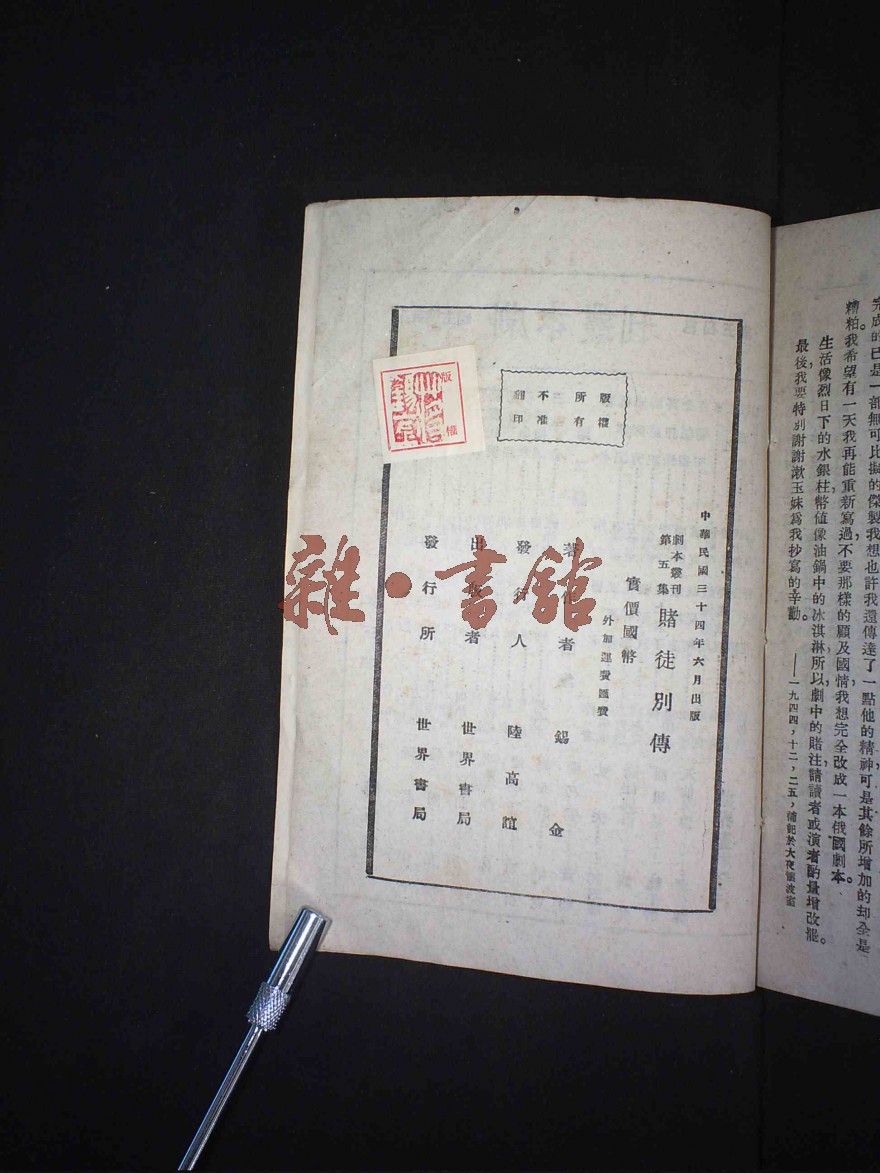 完成的已是一部無可比擬的傑製我想也許我還傳達了一點他的精神可是其餘所增加的却全是
糟粕。我希望有一天我再能重新寫過，不要那樣的顧及國情我想完全改成一本俄國劇本。
生活像烈日下的水銀柱幣值像油鍋中的冰淇淋所以劇中的賭注請讀者或演者酌量增改罷。
最後我要特別謝謝漱玉妹爲我抄寫的辛勤。
——一九四四，十二，二五，補記於大夜
版權
所有
不准
翻印
版權
中華民國三十四年六月出版
劇本叢刊
第五集
賭徒別傳
實價國幣
外加運費匯費
著作者 錫金
發行人 陸高誼
出版者 世界書局
發行所 世界書局
雜·書館